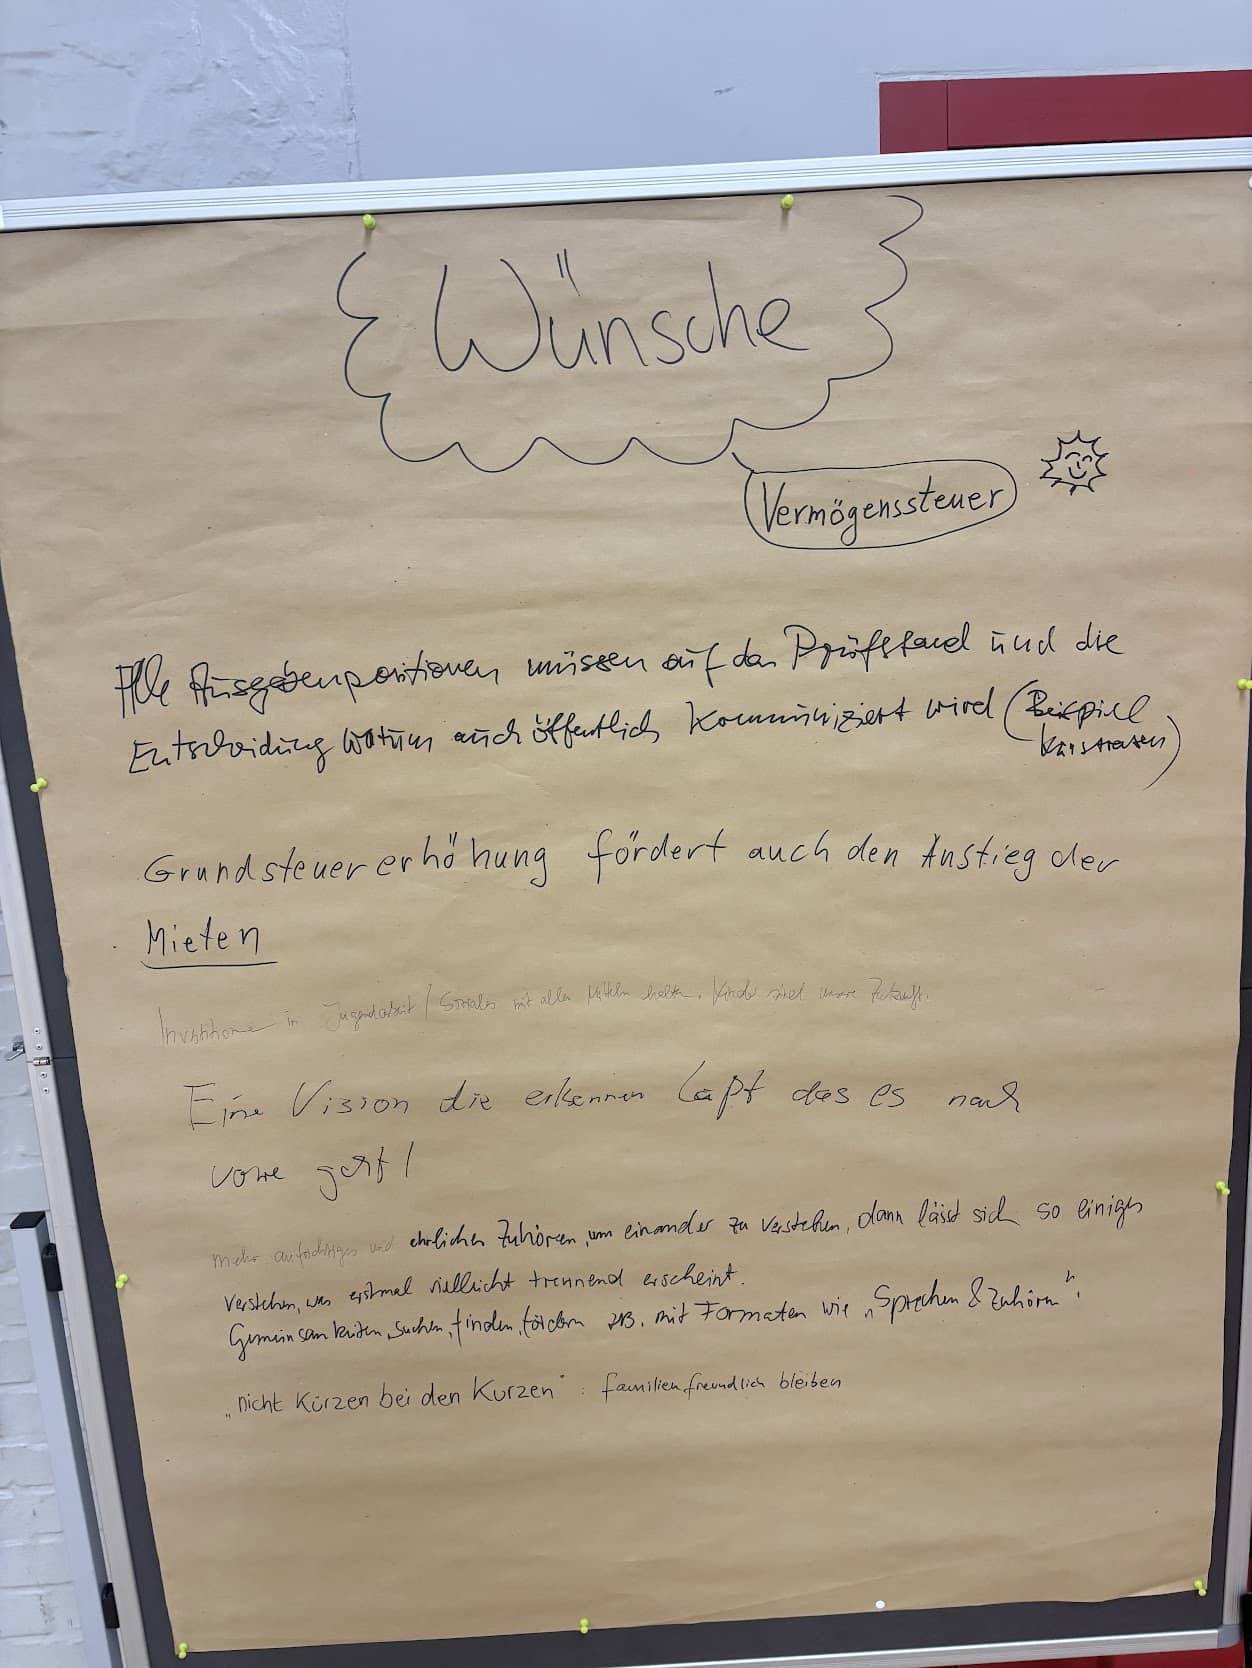 Wünsche
Vermögenssteuer
Alle Ausgabenpositionen müssen auf den Prüfstand und die
Entscheidung warum auch öffentlich kommuniziert wird (Beispiel
Grundsteuererhöhung fördert auch den Anstieg der
Mieten
Investitionen in Jugendarbeit / Soziales mit allen Mitteln halten. Kinder sind unsere Zukunft.
Eine Vision die erkennen läßt das es nach
vorne geht!
mehr aufrichtiges und ehrliches Zuhören, um einander zu verstehen, dann lässt sich so einiges
verstehen, was erstmal vielleicht trennend erscheint.
Gemeinsamkeiten suchen, finden, fördern zB. mit Formaten wie „Sprechen & Zuhören".
„nicht Kürzen bei den Kurzen" : familienfreundlich bleiben